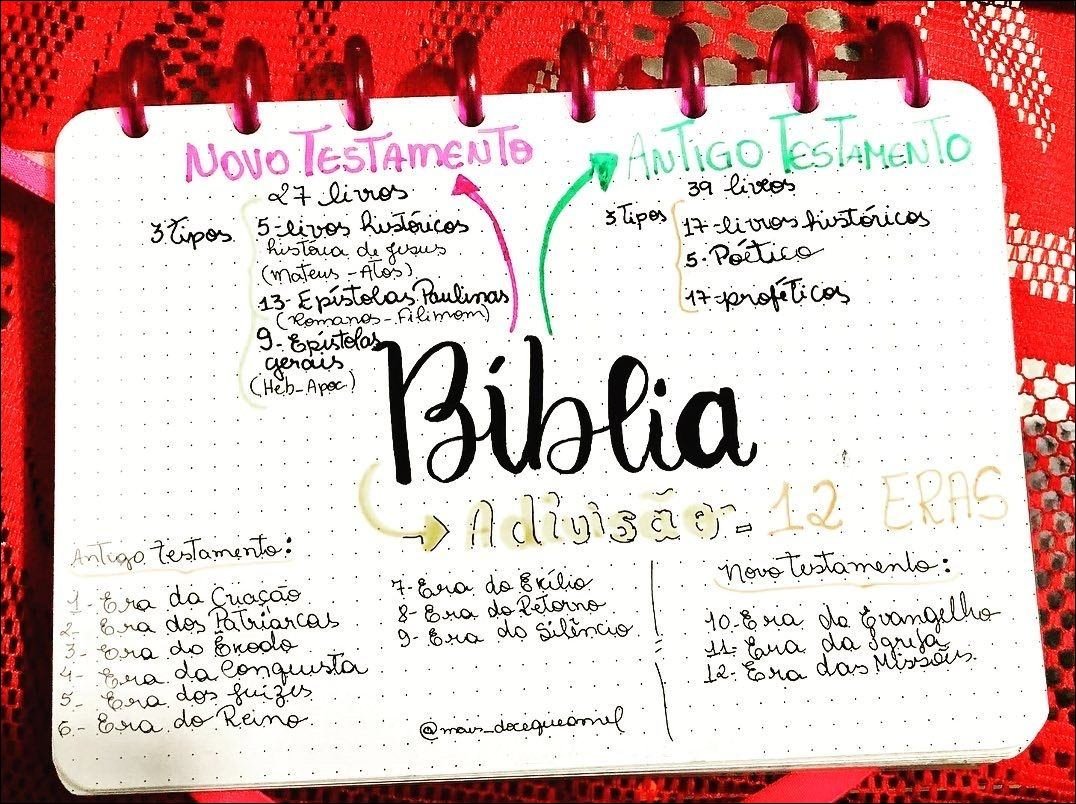 NOVO TESTAMENTO
27 livros
3 tipos
5-livos históricos
história de Jesus
(Mateus-Atos)
13-Epístolas Paulinas
(Romanos-Filimom)
9-Epístolas
gerais
(Heb-Apoc)
ANTIGO TESTAMENTO
39 livros
3 tipos
17-livros históricos
5-Poético
17-proféticos
Bíblia
A divisão - 12 ERAS
Antigo Testamento:
1-Era da Criação
2-Era dos Patriarcas
3-Era do Êxodo
4-Era da Conquista
5-Era dos Juízes
6-Era do Reino
7-Era do Exílio
8-Era do Retorno
9-Era do Silêncio
Novo Testamento:
10-Era do Evangelho
11-Era da Igreja
12-Era das Missões
@mais_docequeomel